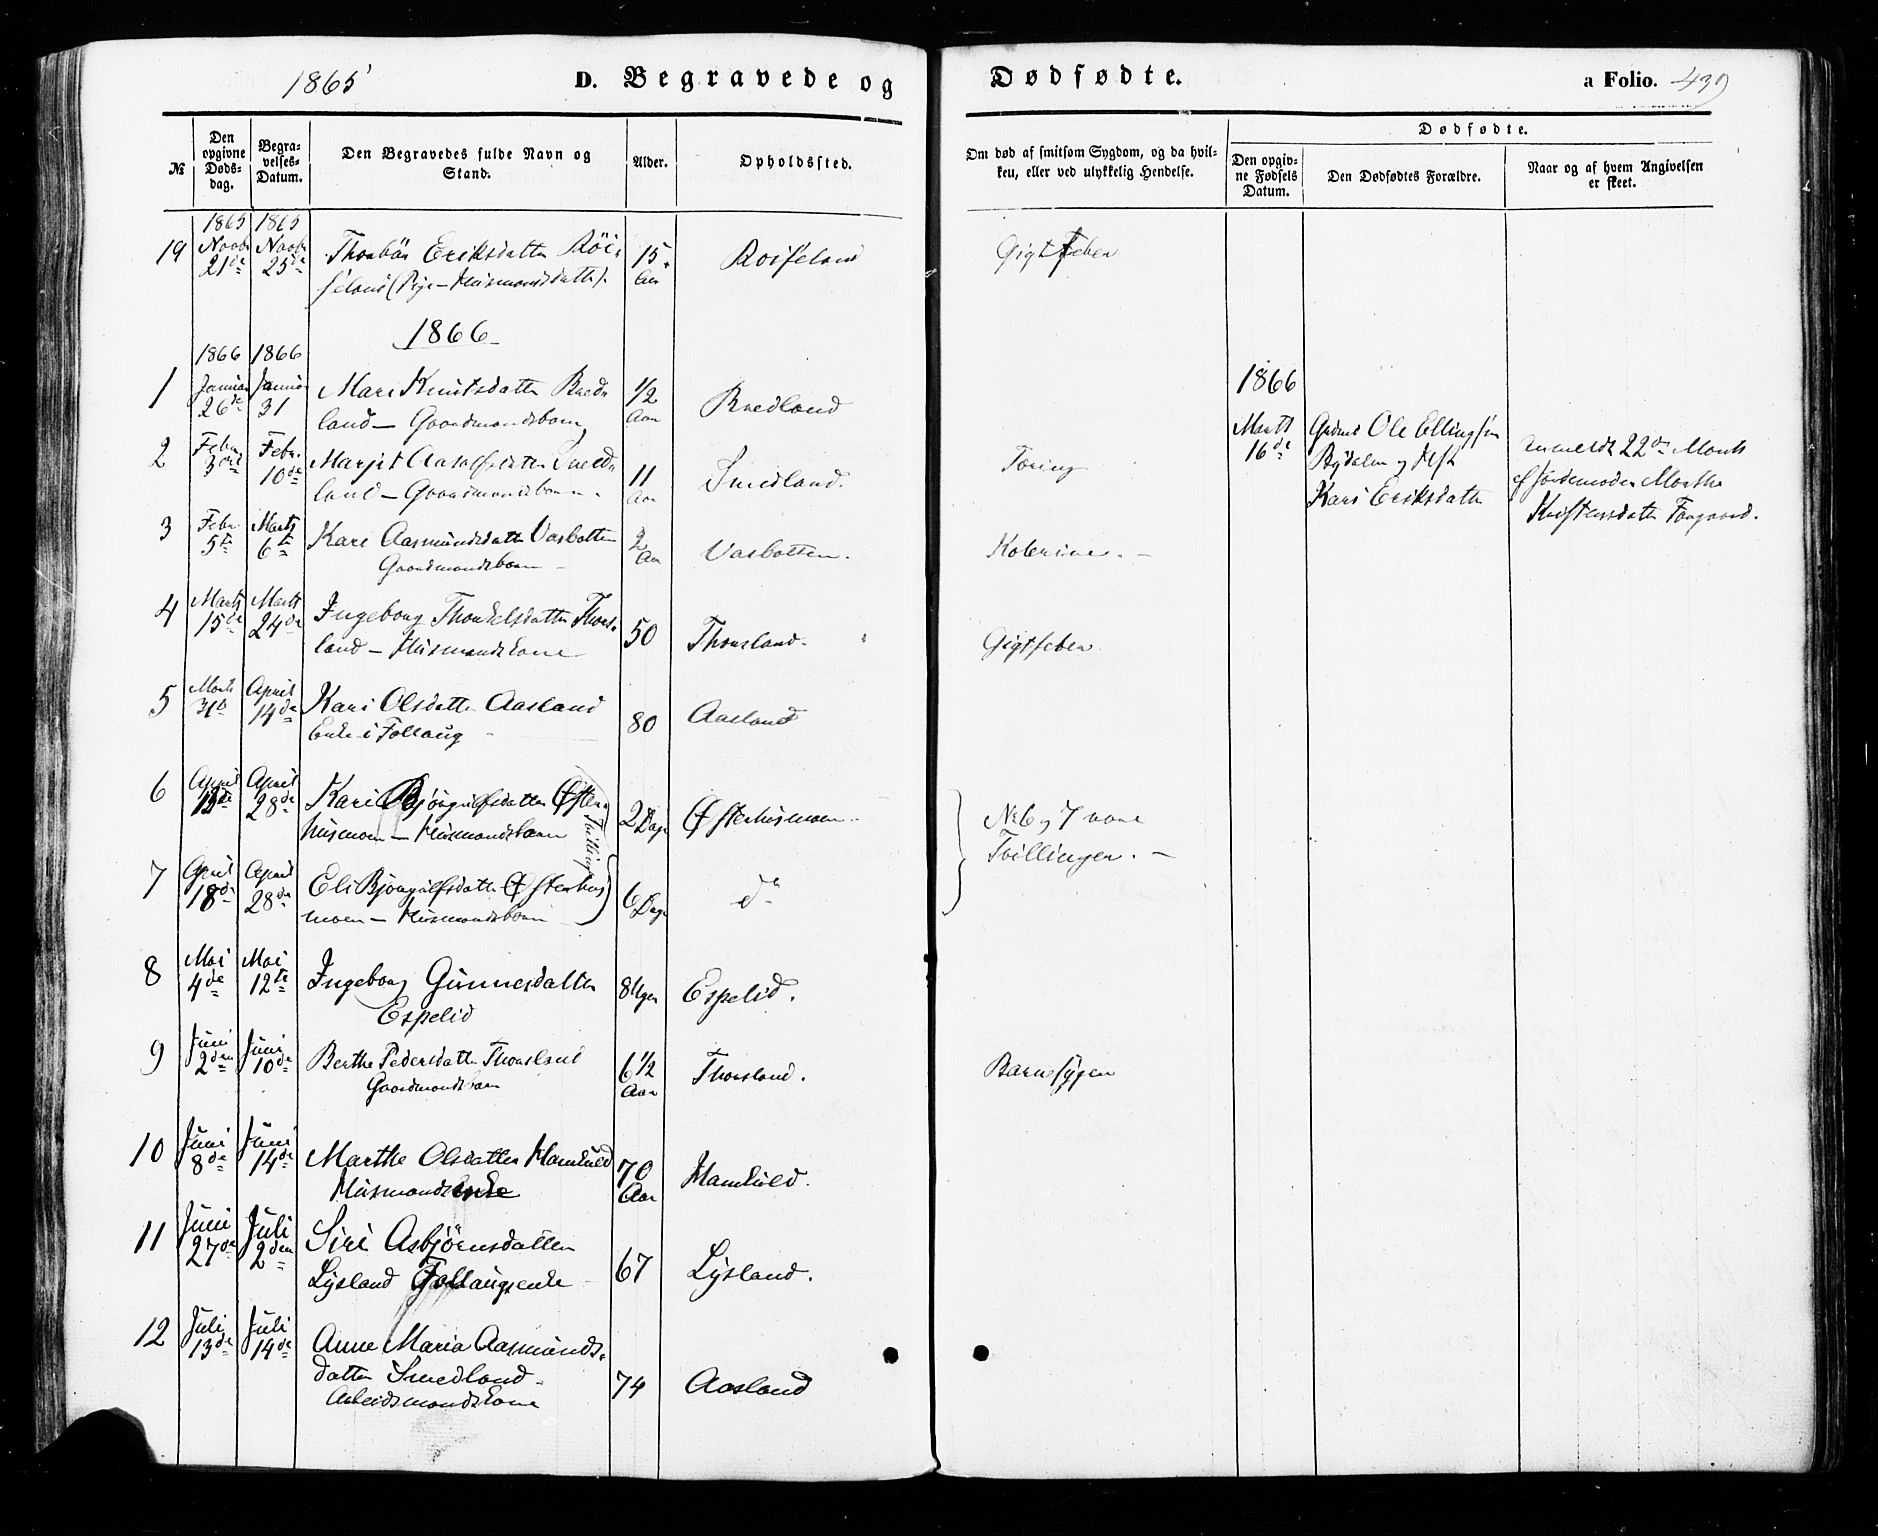 1865
D. Begravede og
Dødfødte.
a Folio. 439
№
Den opgivne Dødsdag.
Begravelses-Datum.
Den Begravedes fulde Navn og Stand.
Alder.
Opholdssted.
Om død af smitsom Sygdom, og da hvilken, eller ved ulykkelig Hendelse.
Dødfødte.
Den opgivne Fødsels Datum.
Den Dødfødtes Forældre.
Naar og af hvem Angivelsen er skeet.
1865 1865
19 Novbr 21de Novbr 25de Thorbør Eriksdatter Röi-
seland (Pige - Husmandsdatter). 15 Aar Roiseland Gigtfeber
1866
1866 1866
1 Januar 26de Januar 31 Mari Knutsdatter Bred-
land - Gaardmandsbarn 1/2 Aar Bredland
2 Febr. 3die Febr. 10de Margit Aasolfsdatter Smed-
land - Gaardmandsbarn. 11 Aar Smedland. Tæring
1866
Marts 16de
Gdmd Ole Ellingsøn
Bydalen og Hst
Kari Eriksdatter
anmeldt 22de Marts
af Jordemoder Marthe
Kristensdatter Forgaard.
3 Febr. 5te Marts 6te Kari Aasmundsdatter Vasbotten
Gaardmandsbarn 2 Aar Vasbotten. Kolerine. -
4 Marts 15de Marts 24de Ingeborg Thorkelsdatter Thors-
land - Husmandskone 50 Thorsland. Gigtfeber
5 Marts 31te April 14de Kari Olsdatter Aasland
Enke i Follaug 80 Aasland
6 April 13de April 28de Kari Bjørgulfsdatter Øster-
husmoen - Husmandsbarn 2 Dage Østerhusmoen
Tvillinger
№ 6 og 7 vare
Tvillinger. -
7 April 18de April 28de Eli Bjørgulfsdatter Østerhus
moen - Husmandsbarn 6 Dage do
8 Mai 4de Mai 12te Ingeborg Gunnesdatter
Espelid 8 Uger Espelid.
9 Juni 2den Juni 10de Berthe Pedersdatter Thorsland
Gaardmandsbarn 6 1/2 Aar Thorsland. Barnesygen
10 Juni 8de Juni 14de Marthe Olsdatter Hamkuld
Husmandsenke 70 Aar Hamkuld.
11 Juni 27de Juli 2den Siri Asbjörnsdatter
Lysland Follaugsenke 67 Lysland.
12 Juli 13de Juli 14de Anne Maria Aasmunds-
datter Smedland.
Arbeidsmandskone 74 Aasland